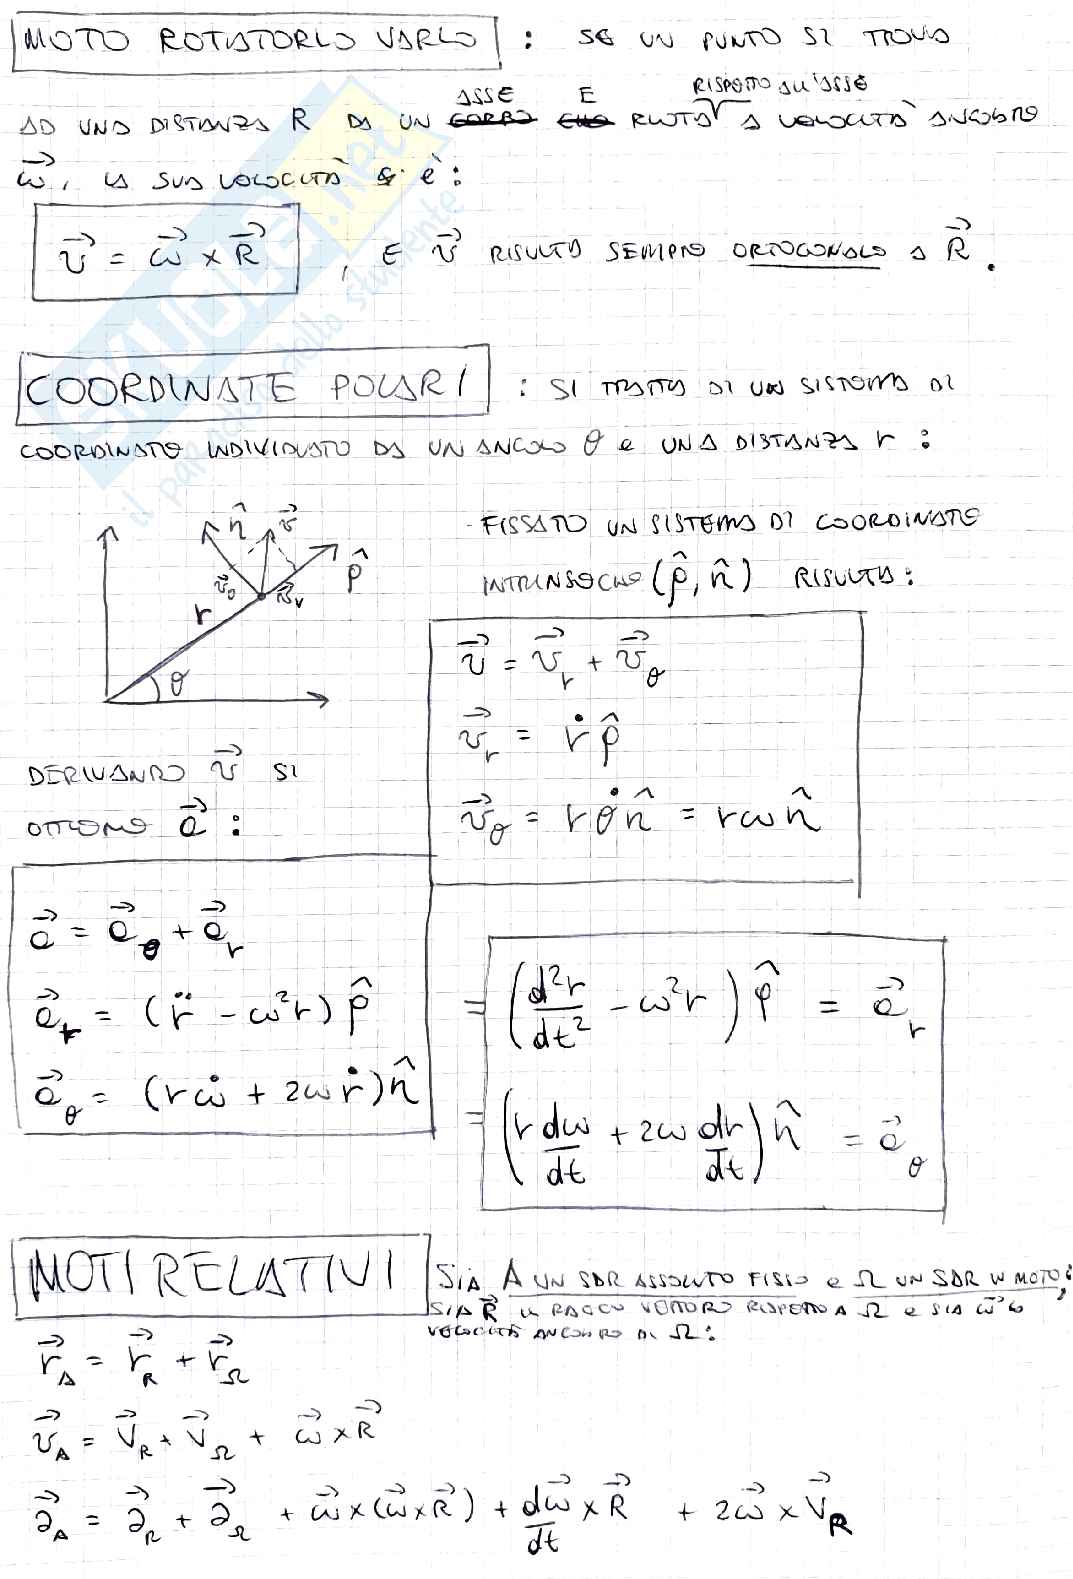 MOTO ROTATORIO VARIO : SE UN PUNTO SI TROVA
ASSE E RISPETTO ALL'ASSE
AD UNA DISTANZA R DA UN CORPO CHE RUOTA A VELOCITÀ ANGOLARE
ω⃗, LA SUA VELOCITÀ è:
v⃗ = ω⃗ × R⃗ , E v⃗ RISULTA SEMPRE ORTOGONALE A R⃗.
COORDINATE POLARI : SI TRATTA DI UN SISTEMA DI
COORDINATE INDIVIDUATO DA UN ANGOLO θ e UNA DISTANZA r :
n̂ v⃗ ρ̂
v⃗θ v⃗r
r
θ
FISSATO UN SISTEMA DI COORDINATE
INTRINSECHE (ρ̂, n̂) RISULTA:
v⃗ = v⃗r + v⃗θ
v⃗r = ṙ ρ̂
v⃗θ = r θ̇ n̂ = r ω n̂
DERIVANDO v⃗ SI
OTTIENE a⃗ :
a⃗ = a⃗θ + a⃗r
a⃗r = (r̈ - ω²r) ρ̂ = (d²r/dt² - ω²r) ρ̂ = a⃗r
a⃗θ = (r ω̇ + 2ω ṙ) n̂ = (r dω/dt + 2ω dr/dt) n̂ = a⃗θ
MOTI RELATIVI SIA A UN SDR ASSOLUTO FISSO e Ω UN SDR IN MOTO;
SIA R⃗ IL RAGGIO VETTORE RISPETTO A Ω e SIA ω⃗ LA
VELOCITÀ ANGOLARE DI Ω:
r⃗A = r⃗R + r⃗Ω
v⃗A = V⃗R + V⃗Ω + ω⃗ × R⃗
a⃗A = a⃗R + a⃗Ω + ω⃗ × (ω⃗ × R⃗) + dω⃗/dt × R⃗ + 2ω⃗ × V⃗R
SKUOLA.net
il paradiso dello studente